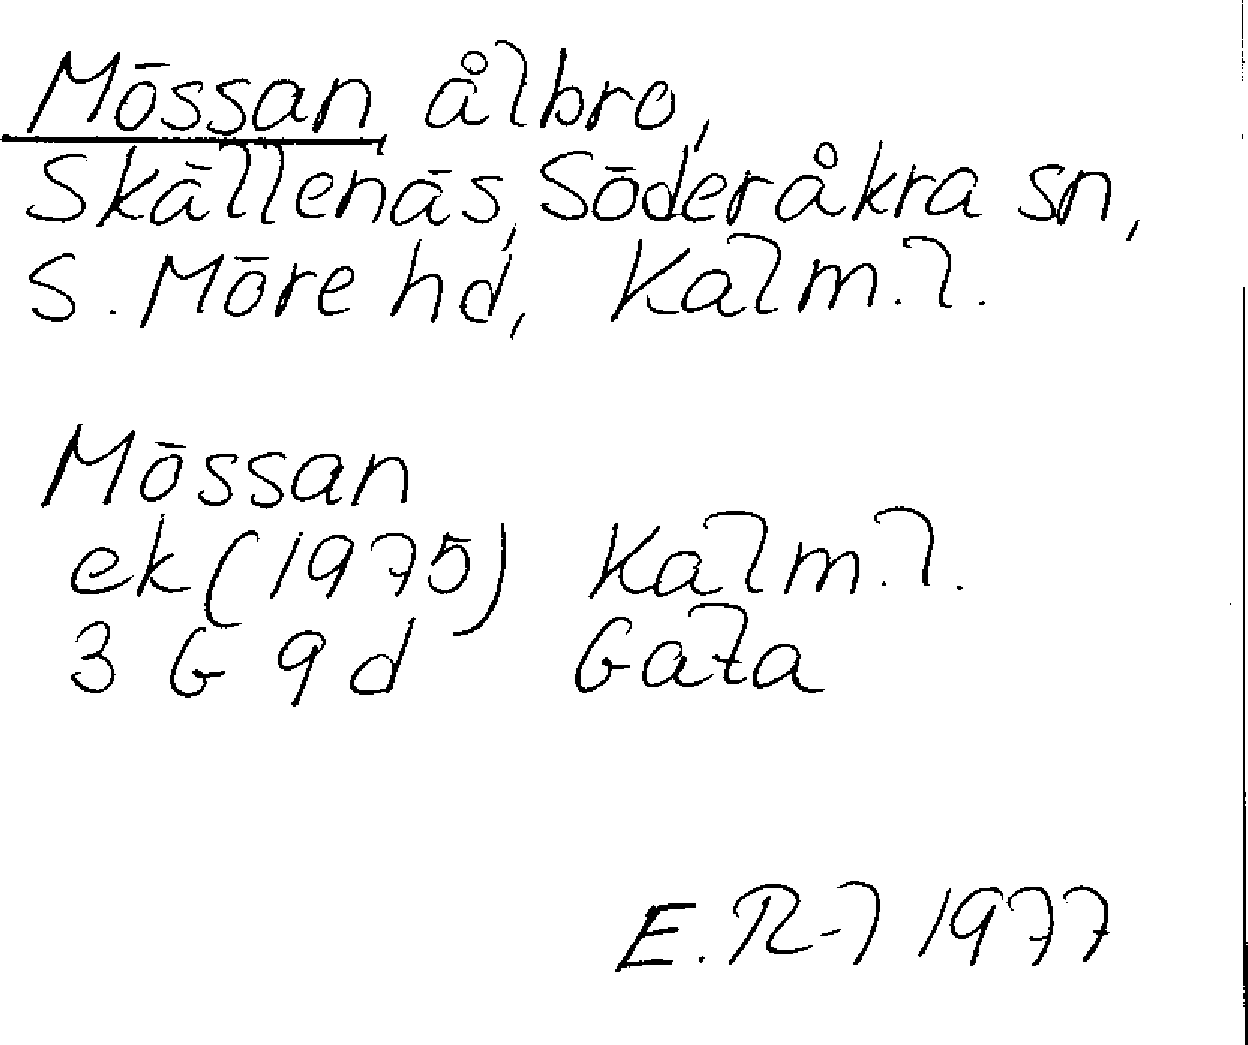 Mössan ålbro,
Skällenäs, Söderåkra sn,
S. Möre hd, Kalm. l.
Mössan
ek (1975) Kalm. l.
3 G 9 d Gata
E. R-7 1977